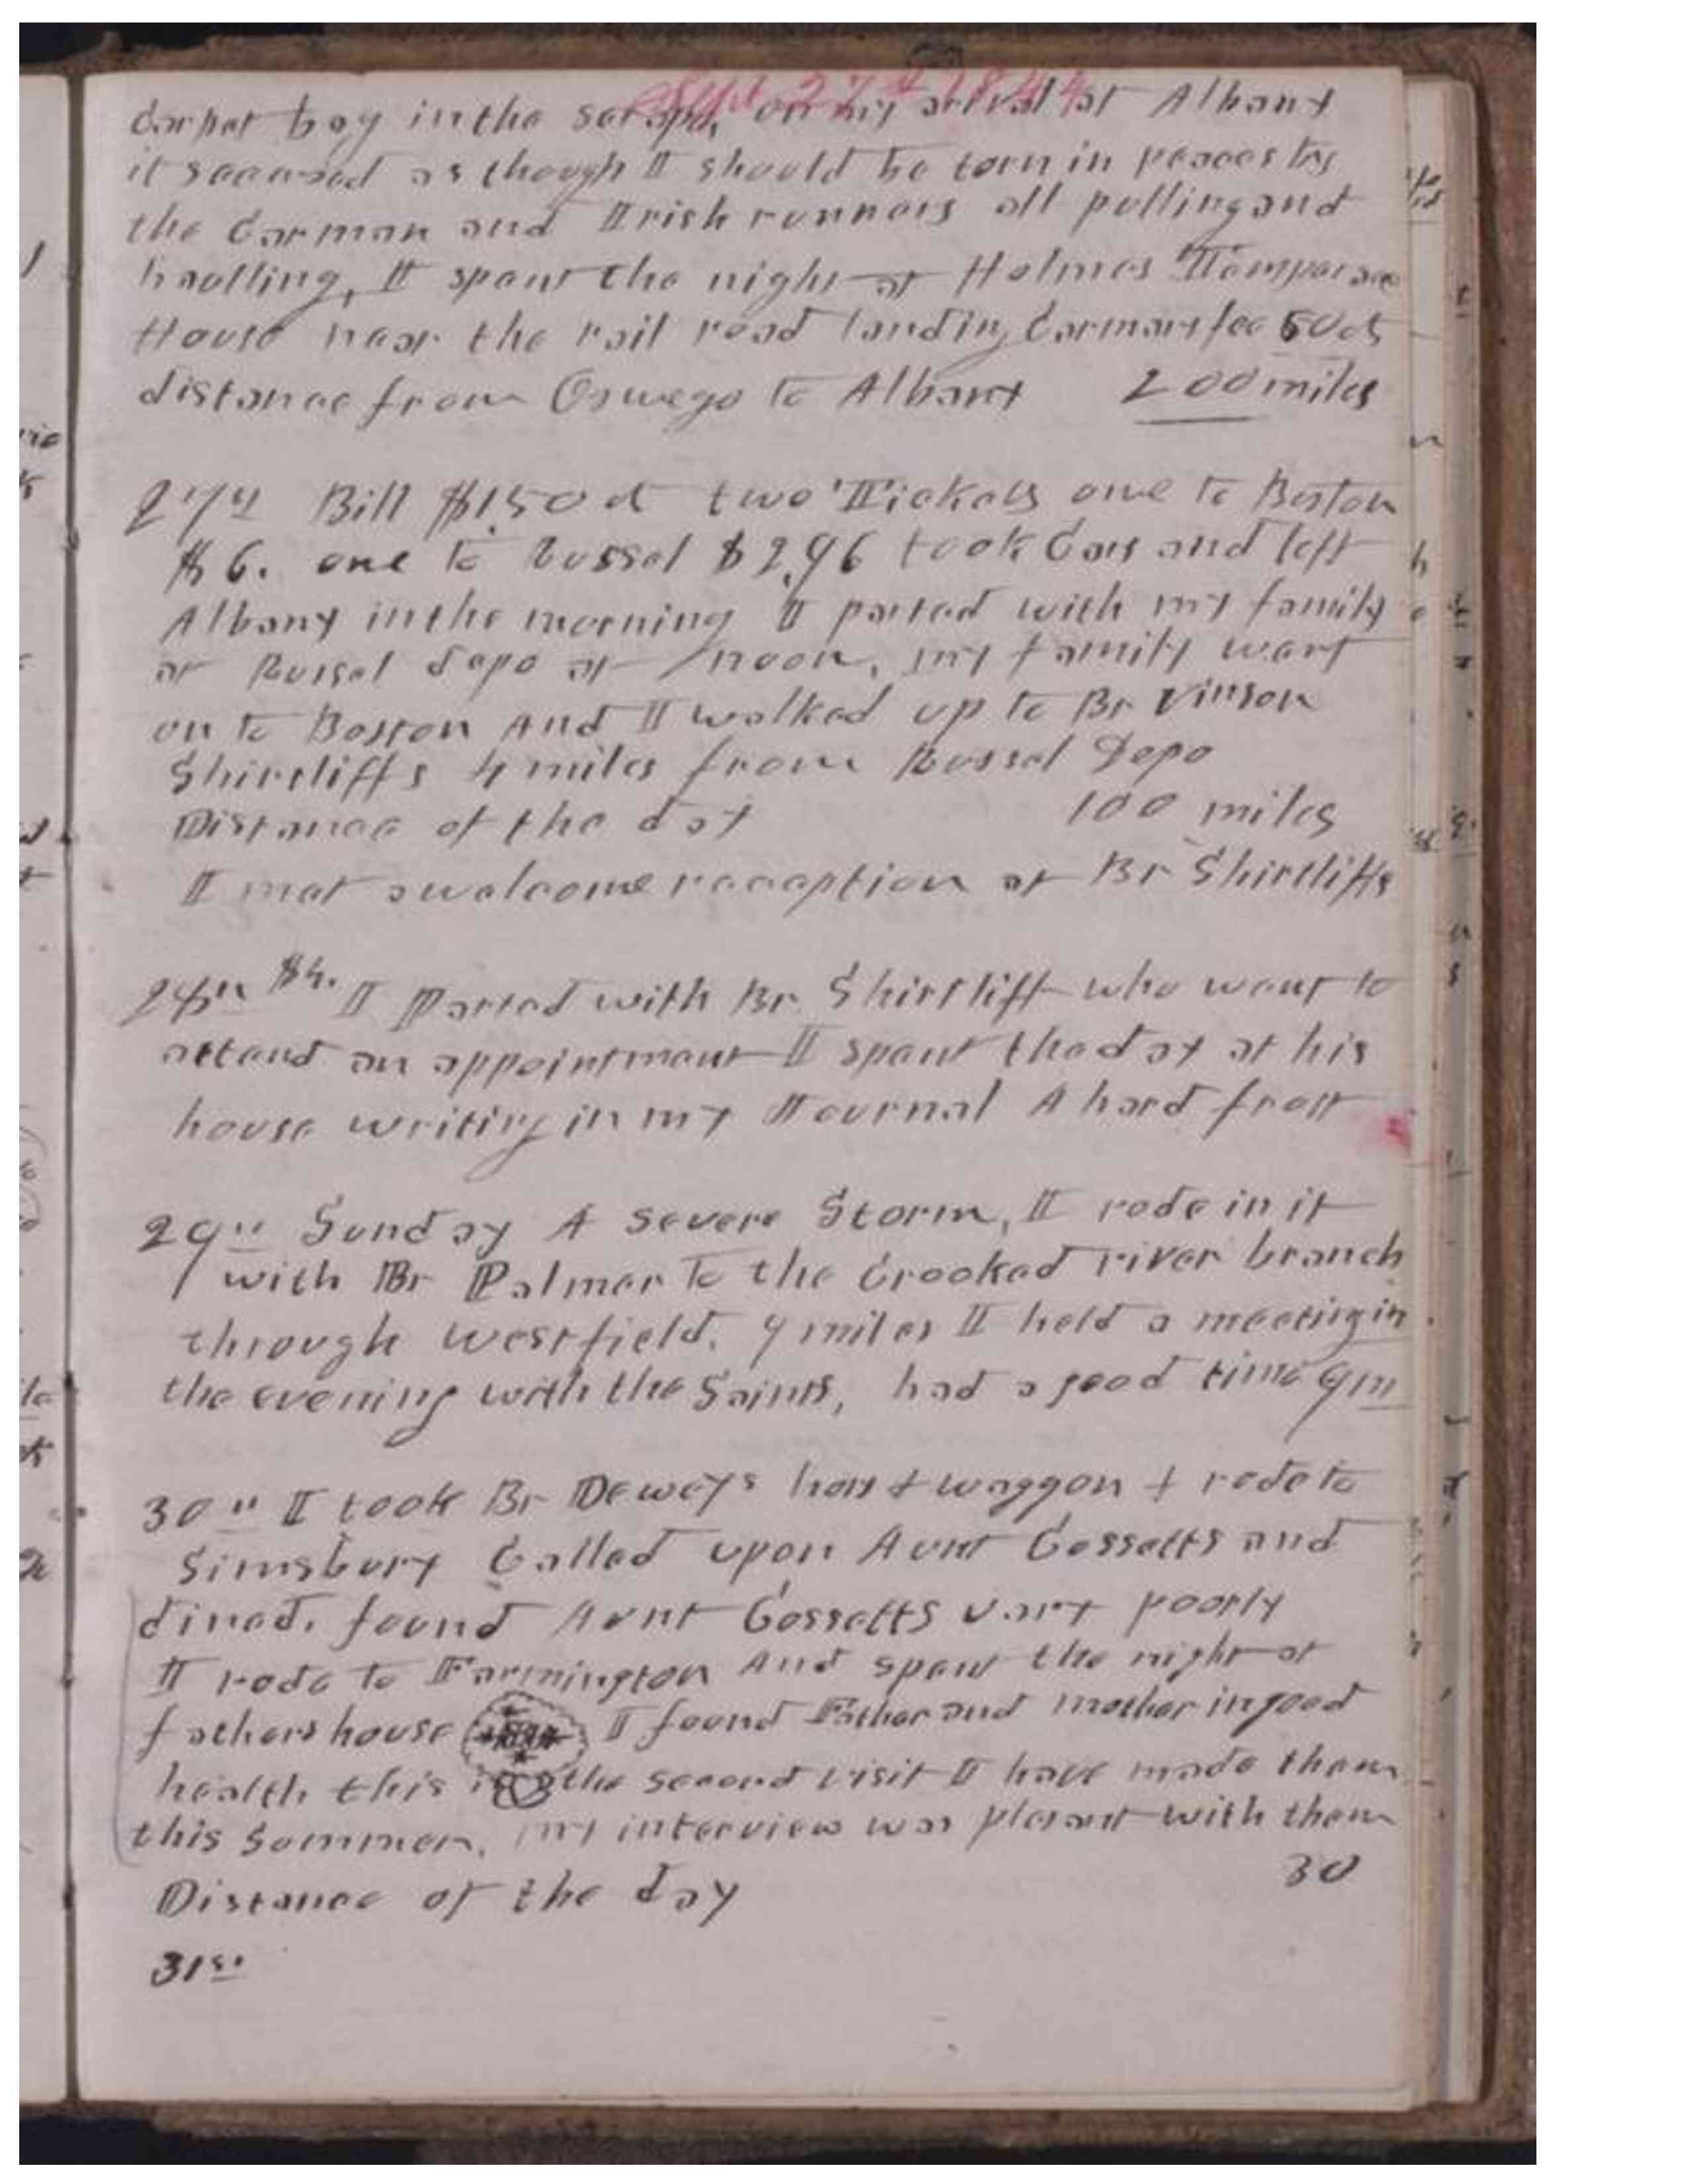 Sept 27th 1844
carpet bag in the scrape, on my arival at Albany
it seeemed as though I should be torn in peaces by
the Carman and Irish runners all pulling and
haulling, I spent the night at Holmes Temperace
House near the rail road landing Carmans fee 50cts
distance from Oswego to Albany 200 miles
27th Bill $1.50 ct two Tickets one to Boston
$6. one to Russel $2,96 took Cars and left
Albany in the morning I parted with my family
at Russel depo at noon, my family went
on to Boston And I walked up to Br Vinson
Shirtliffs 4 miles from Russel Depo
Distance of the day 100 miles
I met a welcome reception at Br Shirtliffs
28th $4. I Parted with Br. Shirtliff who went to
attend an appointment I spent the day at his
house writing in my Journal A hard frost
29th Sunday A severe Storm, I rode in it
with Br Palmer to the Crooked river branch
through westfield. 9 miles I held a meeting in
the evening with the Saints, had a good time 9 m
30th I took Br Deweys hors & waggon & rode to
Simsbury Called upon Aunt Cossetts and
dined. found Aunt Cossetts very poorly
I rode to Farmington And spent the night at
fathers house I found Father and mother in good
health this is the second visit I have made them
this Summer. my interview was plesant with them
Distance of the day 30
31st